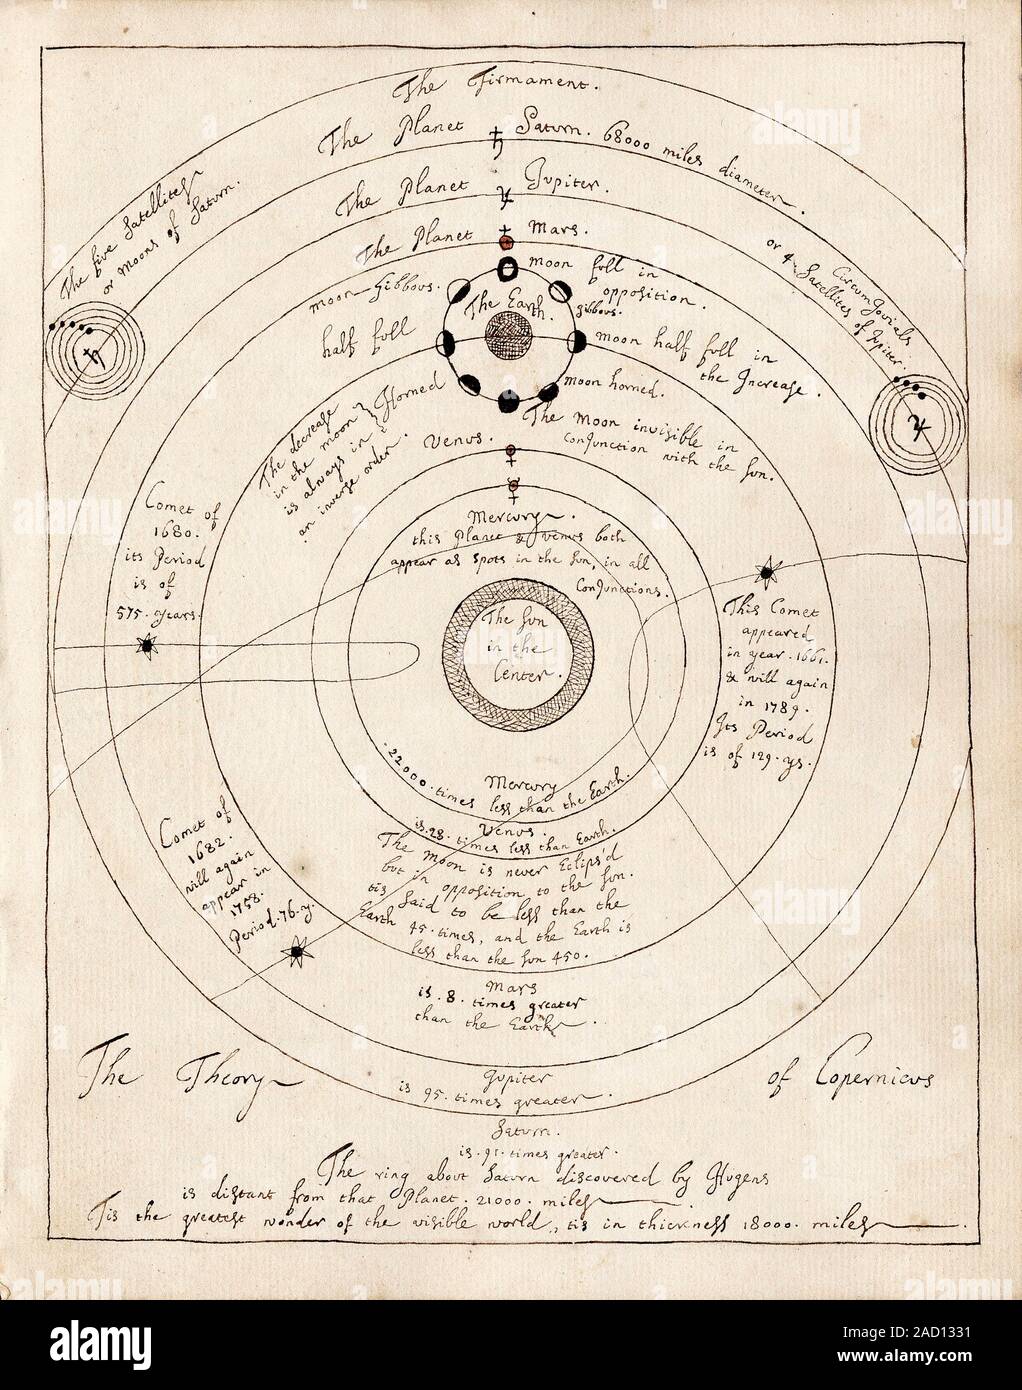 The Firmament.
The Planet ♄ Saturn. 68000 miles diameter.
The five Satellites
or Moons of Saturn.
The Planet ♃ Jupiter.
The Planet Mars.
or 4 Circum Jovials
Satellites of Jupiter.
moon full in
opposition.
moon Gibbous.
Gibbous.
The Earth.
half full
moon half full in
the Increase.
Horned
moon horned.
The decrease
in the moon
is always in
an inverse order.
The Moon invisible in
Conjunction with the Sun.
Venus.
Mercury.
this Planet & Venus both
appear as spots in the Sun, in all
Conjunctions.
Comet of
1680.
its Period
is of
575. years.
The Sun
in the
Center.
This Comet
appeared
in year. 1661.
& will again
in 1789.
Its Period
is of 129. ys.
Mercury
22000. times less than the Earth.
Venus.
is. 28. times less than Earth.
The Moon is never Eclips'd
but in opposition to the Sun.
tis said to be less than the
Earth 45. times, and the Earth is
less than the Sun 450.
Comet of
1682.
will again
appear in
1758.
Period. 76. y.
Mars
is. 8. times greater
than the Earth.
Jupiter
is 95. times greater.
The Theory of Copernicus
Saturn.
is. 91. times greater.
The ring about Saturn discovered by Hugens
is distant from that Planet. 21000. miles
Tis the greatest wonder of the visible world, tis in thickness 18000. miles
alamy
Image ID: 2AD1331
www.alamy.com